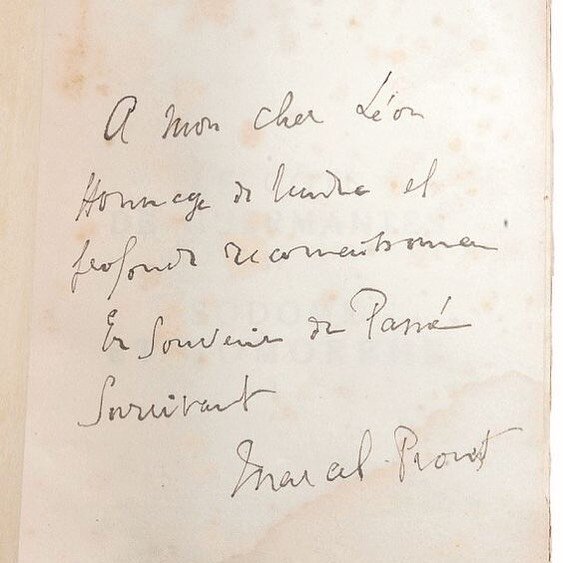 A mon cher Léon
Hommage de tendre et
profonde reconnaissance
En souvenir du Passé
Survivant
Marcel Proust